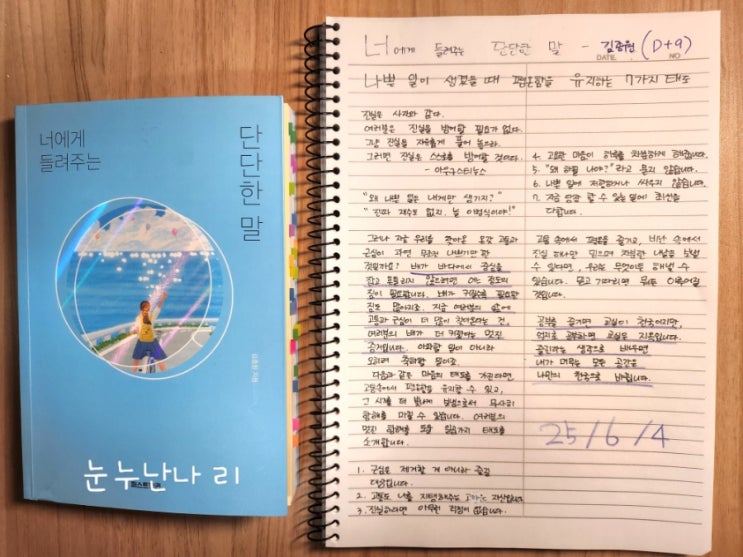 너에게
들려주는
단단한 말
김종원 지음
눈누난나 리
너에게 들려주는 단단한 말 - 김종원 (D+9)
DATE. NO
나쁜 일이 생겼을 때 평온함을 유지하는 7가지 태도
진실은 사자와 같다.
여러분은 진실을 방어할 필요가 없다.
그냥 진실을 자유롭게 풀어 놓으라.
그러면 진실은 스스로를 방어할 것이다.
- 아우구스티누스
"왜 나쁜 일은 내게만 생기지?"
"진짜 재수도 없지. 늘 이런식이야!"
그러나 지금 우리를 찾아온 온갖 고통과
근심이 과연 무조건 나쁘기만 한
것일까요? 배가 바다에서 중심을
잡고 흔들리지 않으려면 어느 정도의
짐이 필요합니다. 배가 커질수록 필요한
짐도 많아지죠. 지금 여러분의 삶에
고통과 근심이 더 많이 찾아온다는 건,
여러분의 배가 더 커졌다는 멋진
증거입니다. 아파할 일이 아니라
오히려 축하할 일이죠.
다음과 같은 마음의 태도를 가진다면
고통속에서 평온함을 유지할 수 있고,
그 시기를 더 빛나게 보냄으로써 무사히
항해를 마칠 수 있습니다. 여러분의
멋진 항해를 도울 일곱가지 태도를
소개합니다.
1. 근심은 제거할 게 아니라 즐길
대상입니다.
2. 고통도 나를 지탱해주는 고마운 자산입니다.
3. 진실하다면 아무런 걱정이 없습니다.
4. 고요한 마음이 하루를 차분하게 해줍니다.
5. "왜 하필 나야?"라고 묻지 않습니다.
6. 나쁜 일에 저항하거나 싸우지 않습니다.
7. 지금 당장 할 수 있는 일에 최선을
다합니다.
고통 속에서 평온을 즐기고, 비난 속에서
진실 하나만 믿으며 차분한 나날을 보낼
수 있다면, 우리는 무엇이든 해낼 수
있습니다. 믿고 기다리면 뭐든 이루어질
것입니다.
공부를 즐기면 교실이 천국이지만,
억지로 공부하면 교실은 지옥입니다.
즐긴다는 생각으로 배우면
내가 머무는 모든 공간은
나만의 천국으로 바뀝니다.
25/6/4